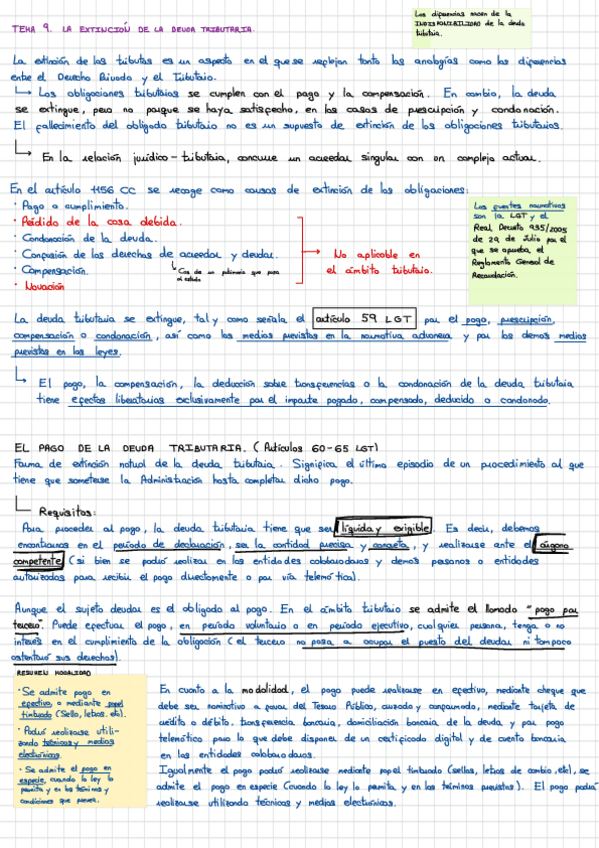 TEMA 9. LA EXTINCIÓN DE LA DEUDA TRIBUTARIA.
Las diferencias nacen de la
INDISPONIBILIDAD de la deuda
tributaria.
La extinción de los tributos es un aspecto en el que se reflejan tanto las analogías como las diferencias
entre el Derecho Privado y el Tributario.
Las obligaciones tributarias se cumplen con el pago y la compensación. En cambio, la deuda
se extingue, pero no porque se haya satisfecho, en los casos de prescripción y condonación.
El fallecimiento del obligado tributario no es un supuesto de extinción de las obligaciones tributarias.
En la relación jurídico-tributaria, concurre un acreedor singular con un complejo actuar.
En el artículo 1156 CC se recoge como causas de extinción de las obligaciones:
· Pago o cumplimiento.
· Pérdida de la cosa debida.
· Condonación de la deuda.
· Confusión de los derechos de acreedor y deudor.
· Compensación.
Cas de un patrimonio que pasa
al estado
· Novación
No aplicable en
el ámbito tributario.
Las fuentes normativas
son la LGT y el
Real Decreto 935/2005
de 29 de Julio por el
que se aprueba el
Reglamento General de
Recaudación.
La deuda tributaria se extingue, tal y como señala el artículo 59 LGT por el pago, prescripción,
compensación o condonación, así como los medios previstos en la normativa aduanera y por los demás medios
previstos en las leyes.
El pago, la compensación, la deducción sobre transferencias o la condonación de la deuda tributaria
tiene efectos liberatorios exclusivamente por el importe pagado, compensado, deducido o condonado.
EL PAGO DE LA DEUDA TRIBUTARIA. (Artículos 60-65 LGT)
Forma de extinción natual de la deuda tributaria. Significa el último episodio de un procedimiento al que
tiene que someterse la Administración hasta completar dicho pago.
Requisitos:
Para proceder al pago, la deuda tributaria tiene que ser líquida y exigible. Es decir, debemos
encontrarnos en el periodo de declaración, ser la cantidad precisa y concreta, y realizarse ante el órgano
competente (si bien se podrá realizar en las entidades colaboradoras y demás personas o entidades
autorizadas para recibir el pago directamente o por vía telemática).
Aunque el sujeto deudor es el obligado al pago. En el ámbito tributario se admite el llamado "pago por
tercero". Puede efectuar el pago, en periodo voluntario o en periodo ejecutivo, cualquier persona, tenga o no
interés en el cumplimiento de la obligación (el tercero no pasa a ocupar el puesto del deudor ni tampoco
ostentará sus derechos).
RESUMEN MODALIDAD
· Se admite pago en
efectivo, o mediante papel
timbrado (Sello, letras, etc).
· Podrá realizarse utili-
zando técnicas y medios
electrónicos.
· Se admite el pago en
especie, cuando la ley lo
permita y en los términos y
condiciones que prevea.
En cuanto a la modalidad, el pago puede realizarse en efectivo, mediante cheque que
debe ser nominativo a favor del Tesoro Público, cruzado y conformado, mediante tarjeta de
crédito o débito, transferencia bancaria, domiciliación bancaria de la deuda y por pago
telemático para lo que debe disponer de un certificado digital y de cuenta bancaria
en las entidades colaboradoras.
Igualmente el pago podrá realizarse mediante papel timbrado (sellos, letras de cambio, etc), se
admite el pago en especie (cuando la ley lo permita y en los términos previstos). El pago podrá
realizarse utilizando técnicas y medios electrónicos.